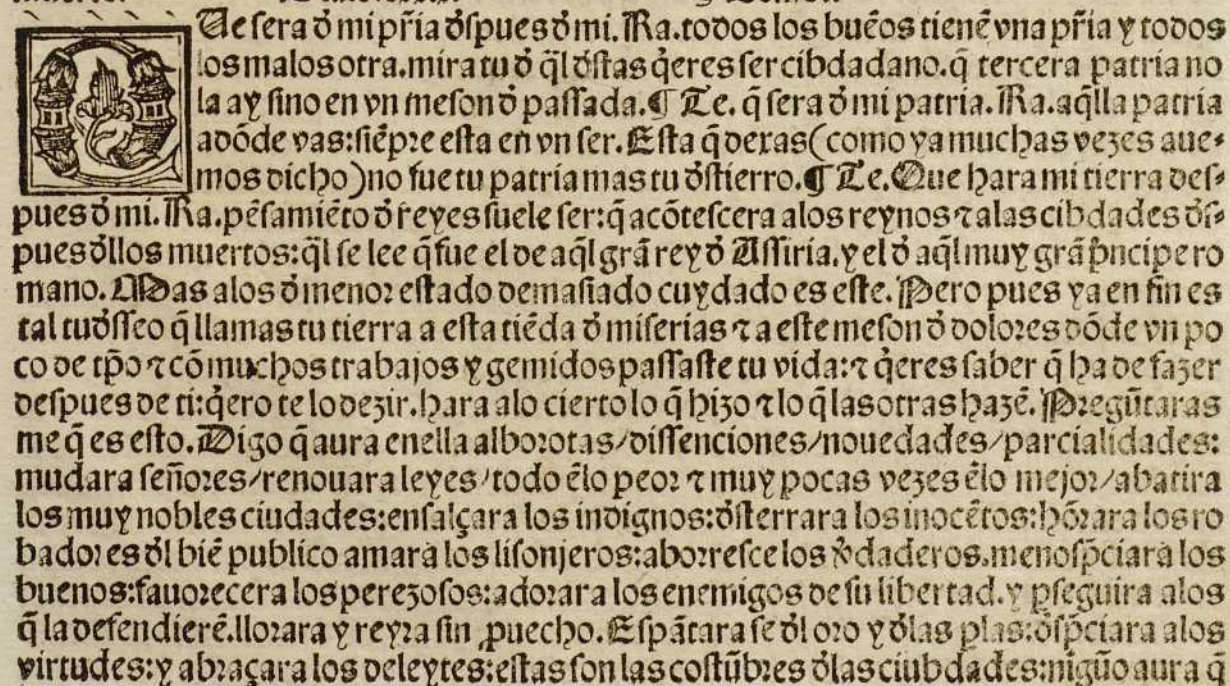 Que sera đ mi pr̃ia đspues đ mi. Ra. todos los buẽos tienẽ vna pr̃ia y todos
los malos otra. mira tu đ q̃l đstas q̃eres ser cibdadano. q̃ tercera patria no
la ay sino en vn meson đ passada. ¶ Te. q̃ sera đ mi patria. Ra. aq̃lla patria
adõde vas: siẽpre esta en vn ser. Esta q̃ dexas (como ya muchas vezes aue-
mos dicho) no fue tu patria mas tu đstierro. ¶ Te. Que hara mi tierra des-
pues đ mi. Ra. pẽsamiẽto đ reyes suele ser: q̃ acõtescera alos reynos ⁊ alas cibdades đs-
pues đllos muertos: q̃l se lee q̃ fue el de aq̃l grã rey đ Assiria. y el đ aq̃l muy grã p̃ncipe ro
mano. Mas alos đ menor estado demasiado cuydado es este. Pero pues ya en fin es
tal tu đsseo q̃ llamas tu tierra a esta tiẽda đ miserias ⁊ a este meson đ dolores dõde vn po
co de tp̃o ⁊ cõ muchos trabajos y gemidos passaste tu vida: ⁊ q̃eres saber q̃ ha de fazer
despues de ti: q̃ero te lo dezir. hara alo cierto lo q̃ hizo ⁊ lo q̃ las otras hazẽ. Pregũtaras
me q̃ es esto. Digo q̃ aura enella alborotas/dissenciones/nouedades/parcialidades:
mudara señores/renouara leyes/todo ẽlo peor ⁊ muy pocas vezes ẽlo mejor/abatira
los muy nobles ciudades: ensalçara los indignos: đsterrara los inocẽtos: hõrara los ro
badores đl biẽ publico amara los lisonjeros: aborresce los ṽdaderos. menosp̃ciara los
buenos: fauorecera los perezosos: adorara los enemigos de su libertad. y p̱seguira alos
q̃ la defendierẽ. llorara y reyra sin ꝓuecho. Espãtara se đl oro y đlas p̱las: đsp̃ciara alos
virtudes: y abraçara los deleytes: estas son las costũbres đlas ciubdades: nigũo aura q̃